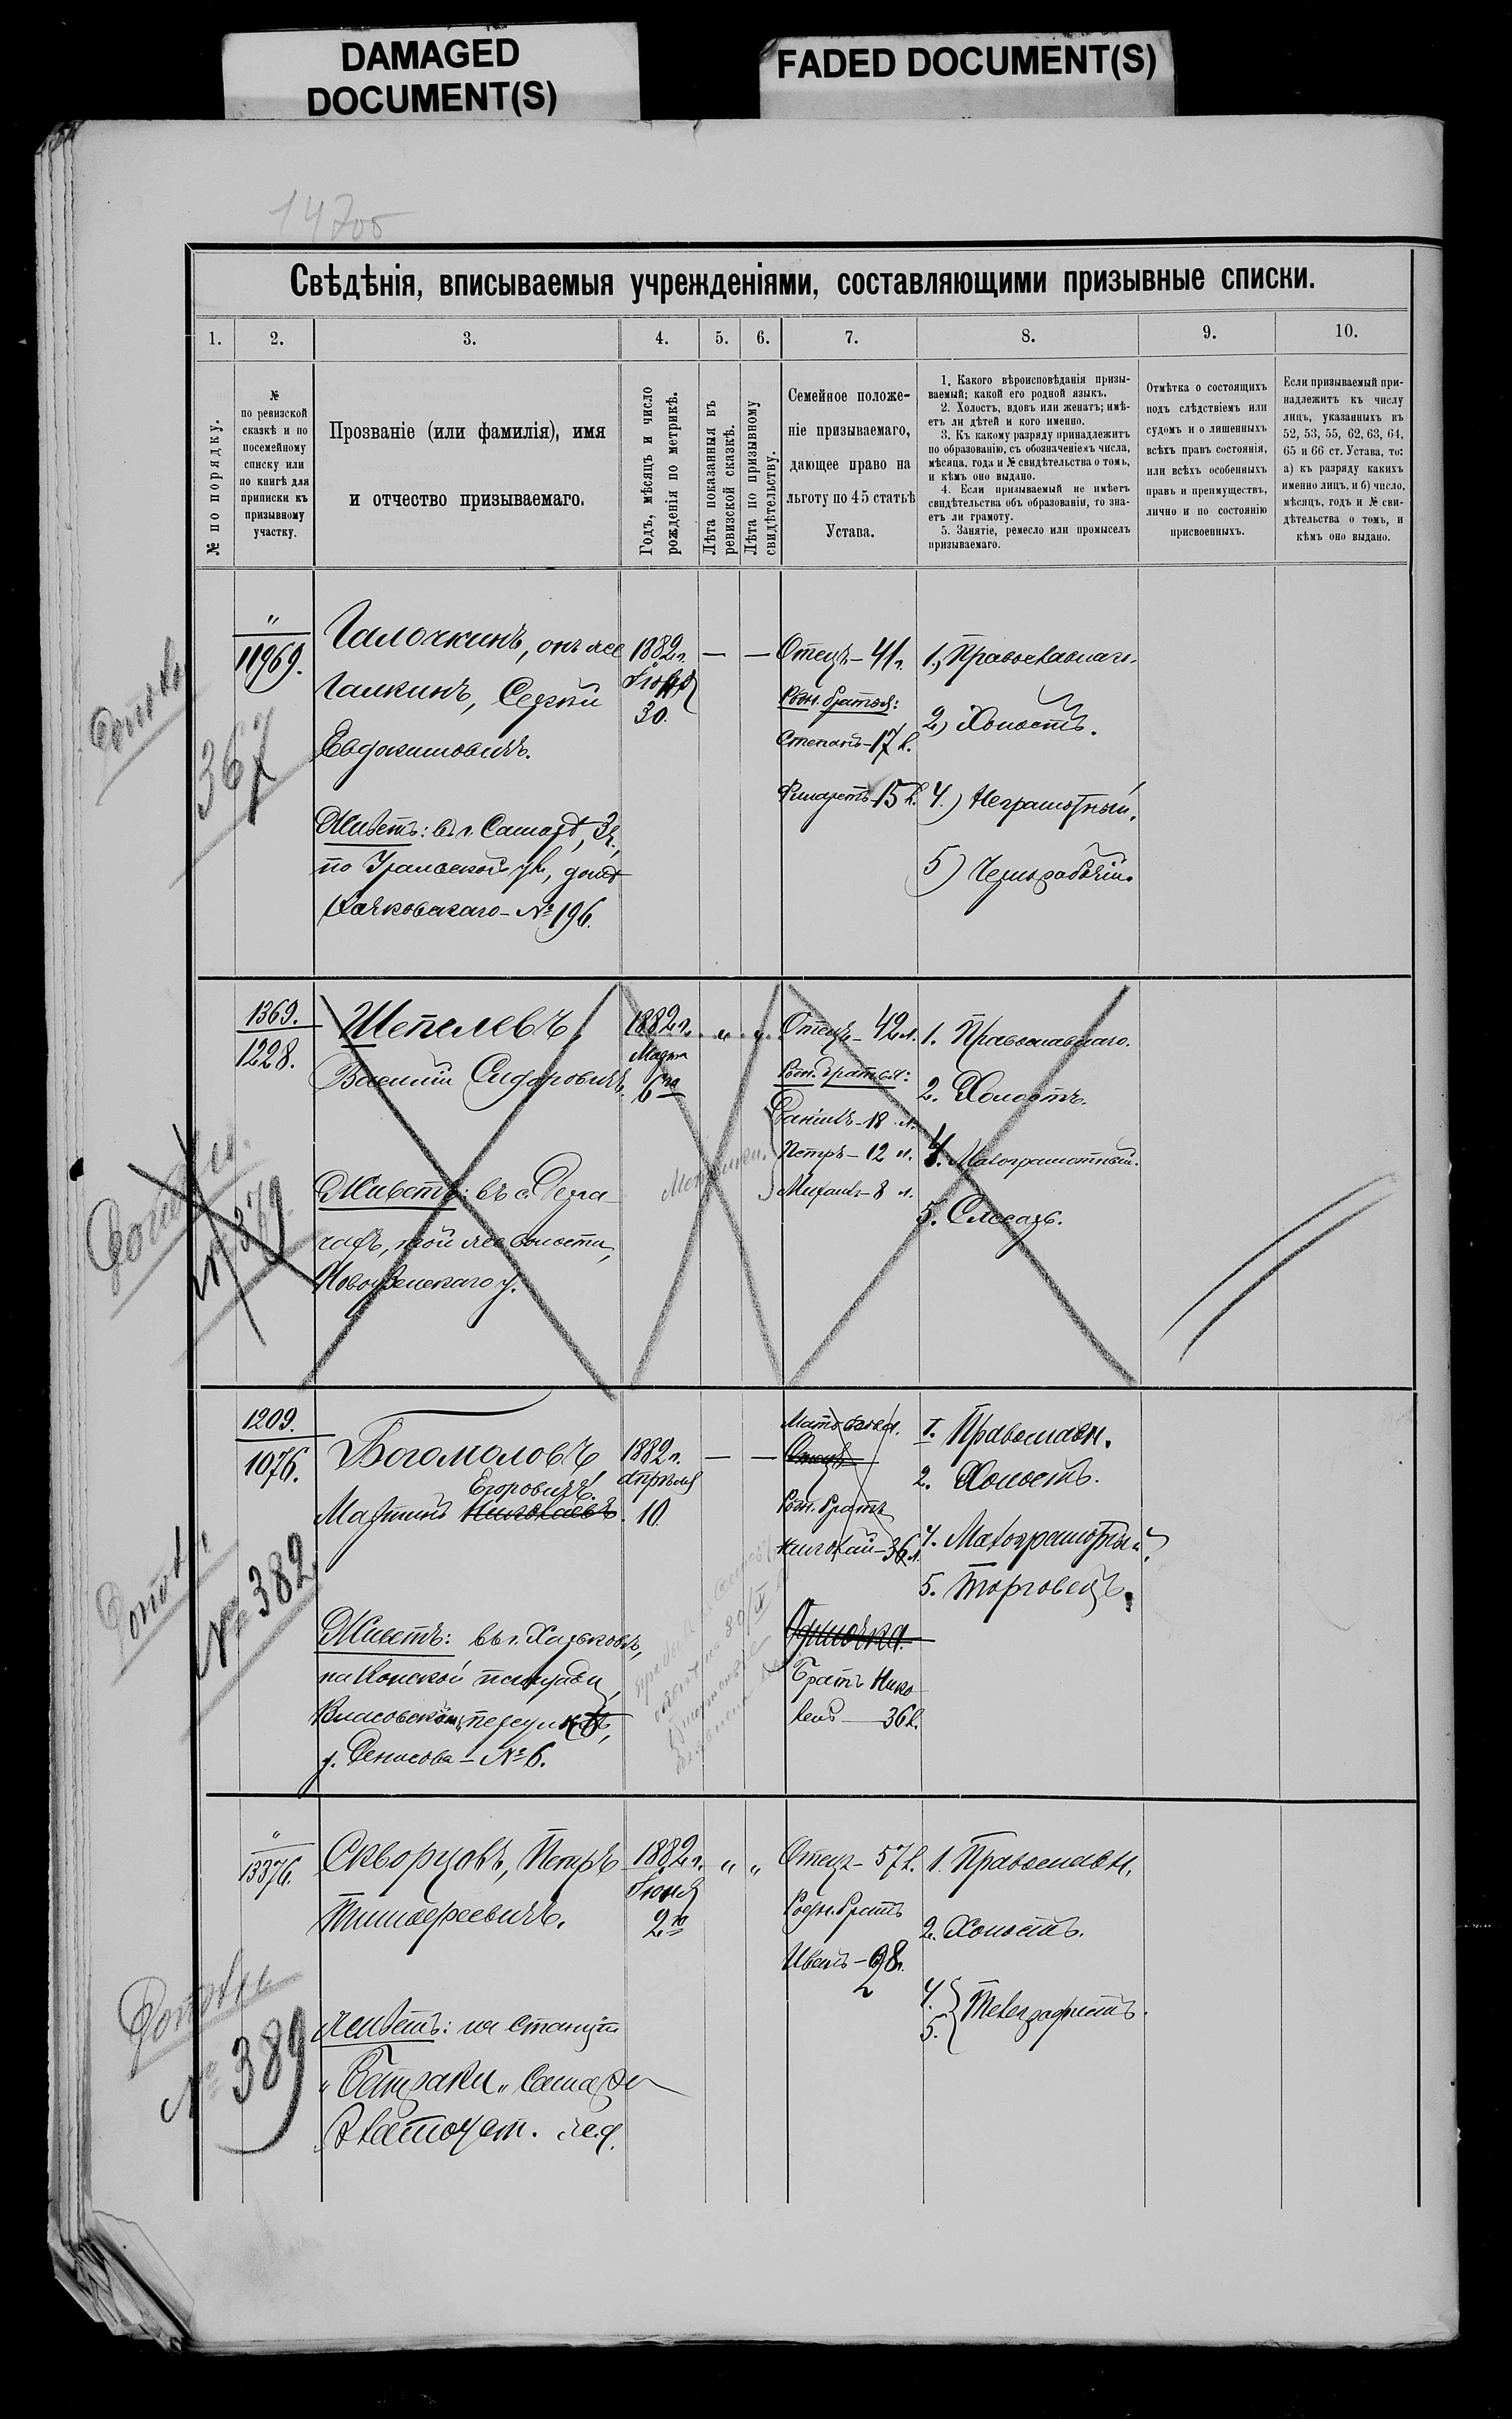 DAMAGED
DOCUMENT(S)
FADED DOCUMENT(S)
Свѣдѣнія, вписываемыя учрежденіями, составляющими призывные списки.
1.
2.
3.
4.
5.
6.
7.
8.
9.
10.
№ по порядку.
№
по ревизской
сказкѣ и по
посемейному
списку или
по книгѣ для
приписки къ
призывному
участку.
Прозваніе (или фамилія), имя
и отчество призываемаго.
Годъ, мѣсяцъ и число
рожденія по метрикѣ.
Лѣта показанныя въ
ревизской сказкѣ.
Лѣта по призывному
свидѣтельству.
Семейное положе-
ніе призываемаго,
дающее право на
льготу по 45 статьѣ
Устава.
1. Какого вѣроисповѣданія призы-
ваемый; какой его родной языкъ.
2. Холостъ, вдовъ или женатъ; имѣ-
етъ ли дѣтей и кого именно.
3. Къ какому разряду принадлежитъ
по образованію, съ обозначеніемъ числа,
мѣсяца, года и № свидѣтельства о томъ,
и кѣмъ оно выдано.
4. Если призываемый не имѣетъ
свидѣтельства объ образованіи, то зна-
етъ ли грамоту.
5. Занятіе, ремесло или промыселъ
призываемаго.
Отмѣтка о состоящихъ
подъ слѣдствіемъ или
судомъ и о лишенныхъ
всѣхъ правъ состоянія,
или всѣхъ особенныхъ
правъ и преимуществъ,
лично и по состоянію
присвоенныхъ.
Если призываемый при-
надлежитъ къ числу
лицъ, указанныхъ въ
52, 53, 55, 62, 63, 64,
65 и 66 ст. Устава, то:
а) къ разряду какихъ
именно лицъ, и б) число,
мѣсяцъ, годъ и № сви-
дѣтельства о томъ, и
кѣмъ оно выдано.
"
11969.
367
Галочкинъ, онъ же
Галкинъ, Сергѣй
Евдокимовичъ.
Живетъ: въ г. Самарѣ, 3 ч.,
по Уральской ул., домъ
№ 196.
1882 г.
Іюня
30.
—
—
Отецъ — 41 г.
Родн. братья:
Степанъ — 17 л.
Филаретъ — 15 л.
1.) Православнаго.
2.) Холостъ.
4.) Неграмотный.
5.) Чернорабочій.
1369.
1228.
№ 379
Шепелевъ,
Василій Сидоровичъ.
Живетъ: въ с. Дерга-
чахъ, той же волости,
Новоузенскаго у.
1882 г.
Марта
6го
"
"
Отецъ — 42 л.
Родн. братья:
Даніилъ — 18 л.
Петръ — 12 л.
Михаилъ — 8 л.
1. Православнаго.
2. Холостъ.
4. Малограмотный.
5. Слесарь.
1209.
1076.
№ 382.
Богомоловъ,
Егоровичъ.
Мартинъ Николаевъ.
Живетъ: въ г. Харьковѣ,
на Конской площади,
Власовскомъ переулкѣ,
д. Денисова — № 6.
1882 г.
Апрѣля
10.
—
—
Отецъ
Родн. братъ
Николай — 36 л.
Одиночка.
Братъ Нико-
лай — 36 л.
1. Православн.
2. Холостъ.
4. Малограмотный.
5. Торговецъ.
"
13376.
№ 389
Скворцовъ, Петръ
Тимофеевичъ.
Живетъ: на станціи
„Батраки" Самаро-
Златоуст. ж. д.
1882 г.
Іюня
2го
"
"
Отецъ — 57 л.
Родн. братъ
Иванъ —
1. Православн.
2. Холостъ.
4.
5.
Телеграфистъ.